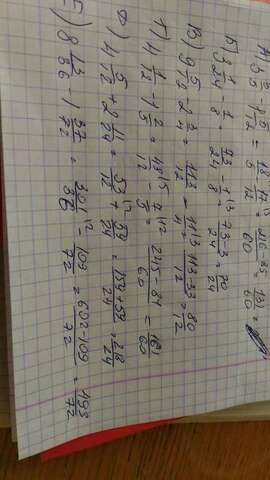 А) 3 3/5 - 1 5/12 = 18/5 - 17/12 = 216-85/60 = 131/60 =
Б) 3 1/24 - 1/8 = 73/24 - 1/8 = 73-3/24 = 70/24
В) 9 5/12 - 2 3/4 = 113/12 - 11/4 = 113-33/12 = 80/12
Г) 4 1/12 - 1 2/5 = 49/12 - 7/5 = 245-84/60 = 161/60
4 5/12 + 2 11/24 = 53/12 + 59/24 = 154+59/24 =
Е) 8 13/36 - 1 37/72 = 301/36 - 109/72 = 602-109/72 = 493/72